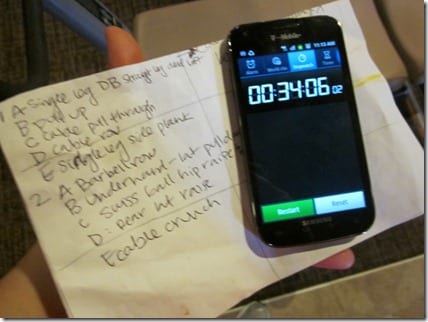 T-Mobile
11:13 AM
Alarm World clock Stopwatch Timer
00:34:06 02
Restart Reset
SAMSUNG
1 A single leg DB straight leg dead lift
B Pull up
C cable pull through
D cable row
E single leg side plank
2 A Barbell row
B Underhand lat pulldo
C Swiss ball hip raise
D: rear lat raise
E cable crunch